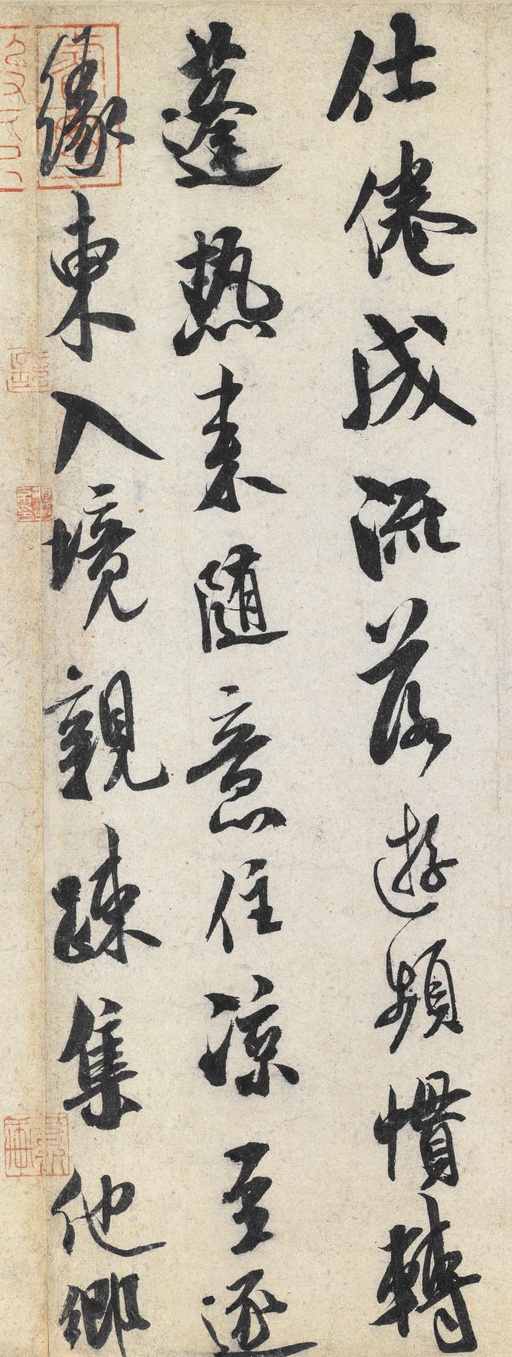 仕倦成流落遊頻慣轉
蓬熱来随意住凉至逐
緣東入境親疎集他鄉